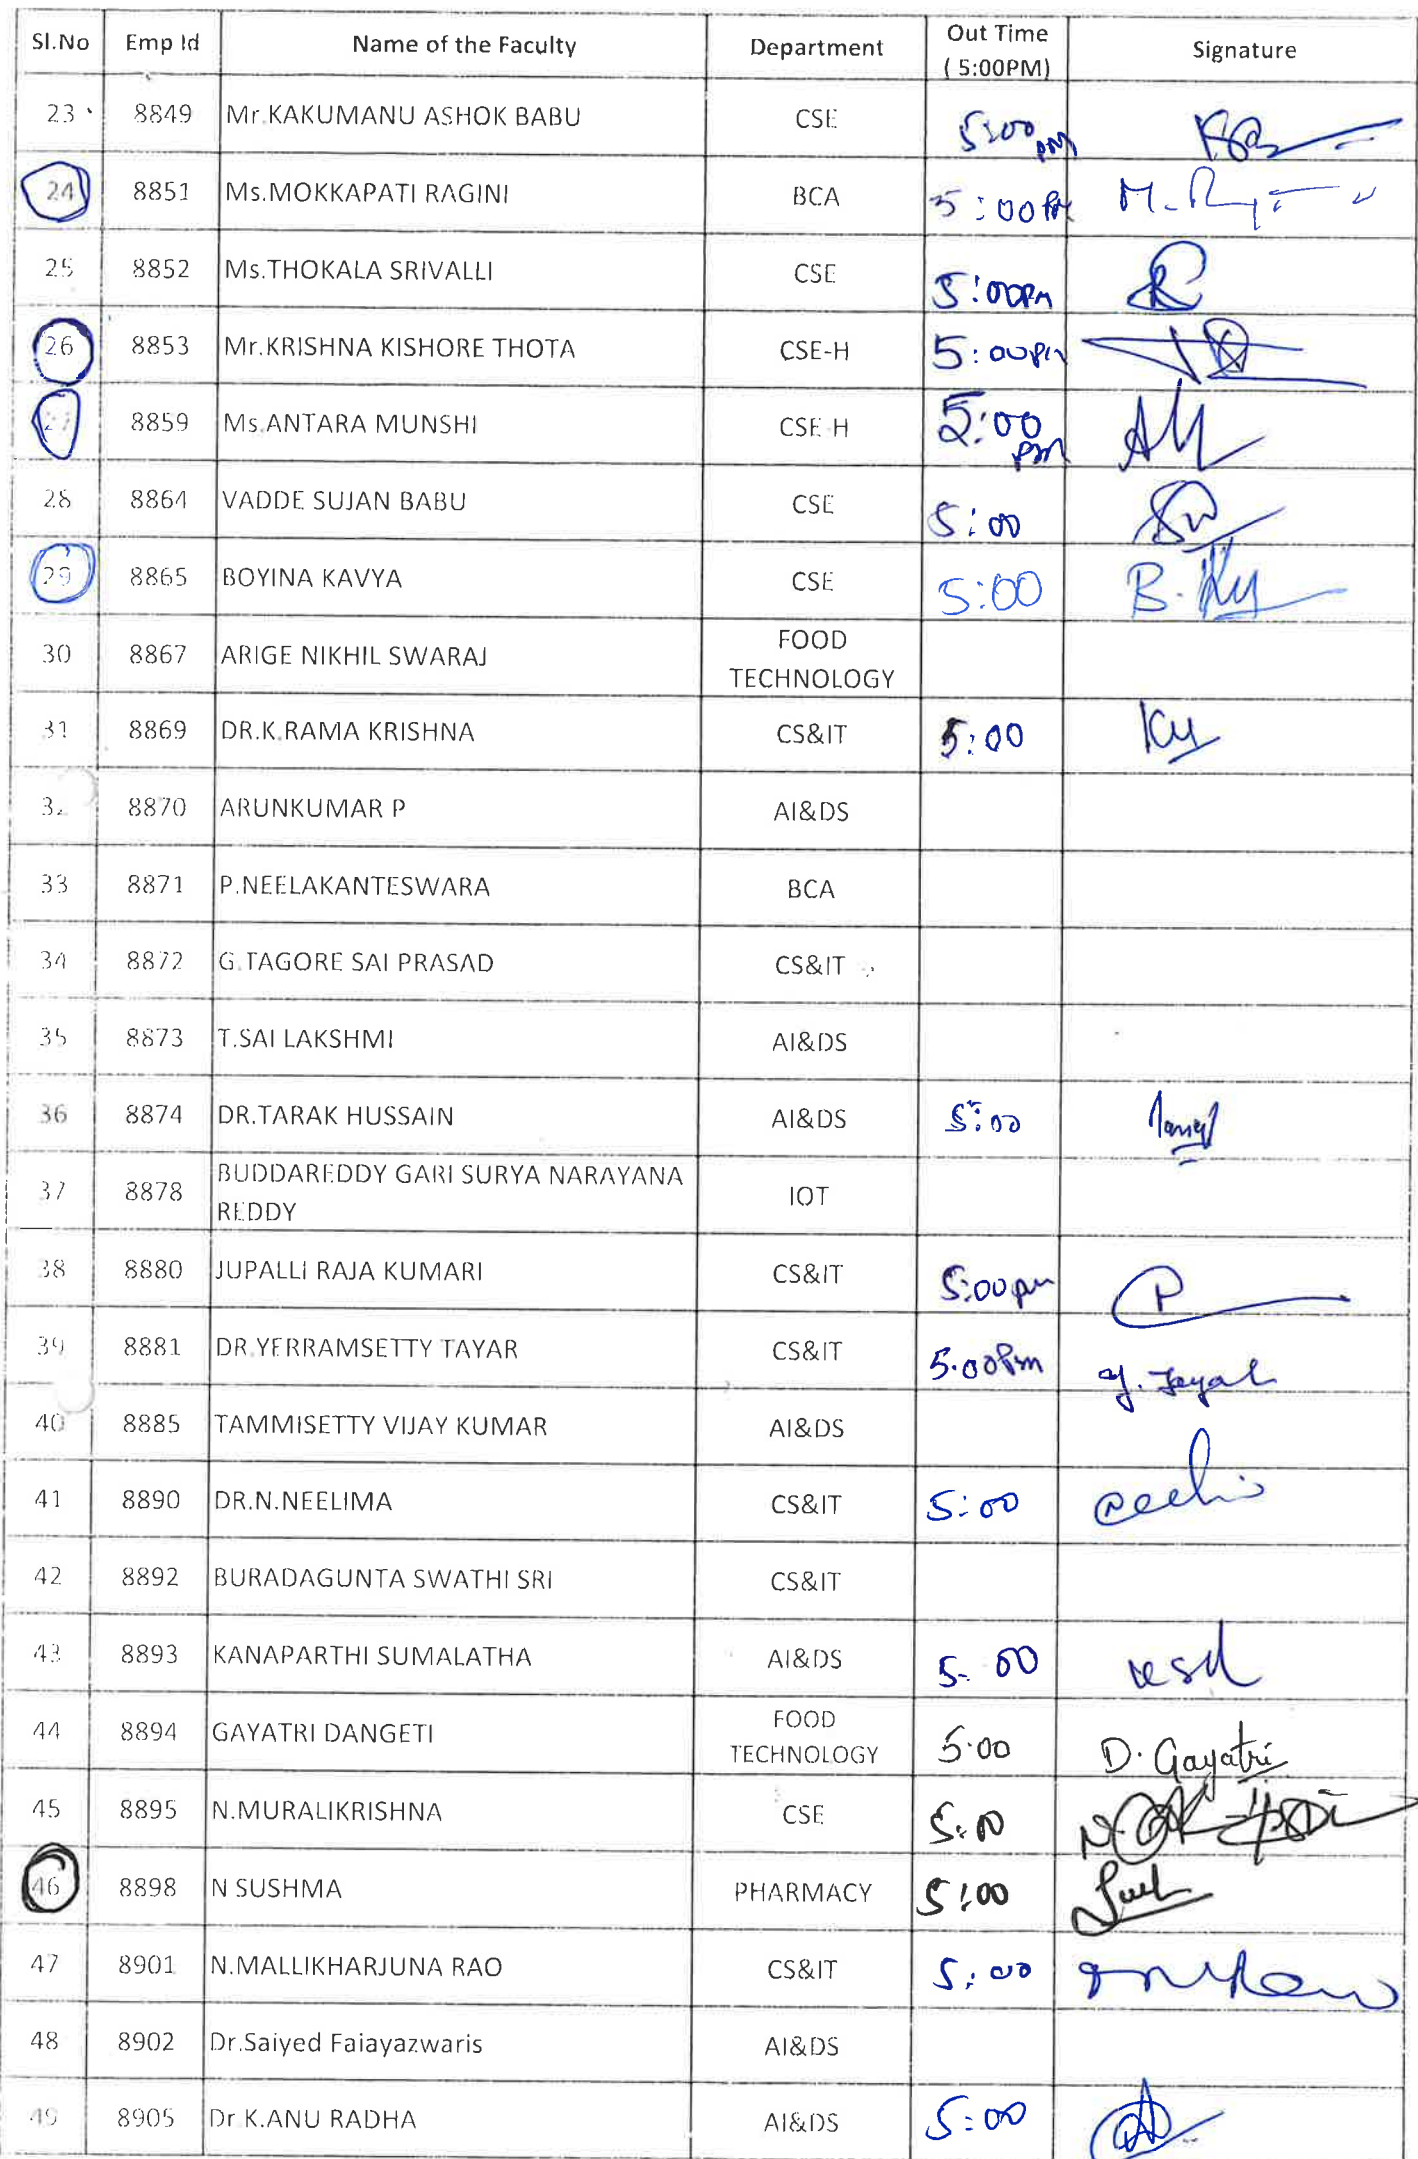 Sl.No Emp Id Name of the Faculty Department Out Time ( 5:00PM) Signature
23 8849 Mr.KAKUMANU ASHOK BABU CSE 5:00 PM
24 8851 Ms.MOKKAPATI RAGINI BCA 5:00 PM
25 8852 Ms.THOKALA SRIVALLI CSE 5:00PM
26 8853 Mr.KRISHNA KISHORE THOTA CSE-H 5:00pm
27 8859 Ms.ANTARA MUNSHI CSE-H 5:00 PM
28 8864 VADDE SUJAN BABU CSE 5:00
29 8865 BOYINA KAVYA CSE 5:00
30 8867 ARIGE NIKHIL SWARAJ FOOD TECHNOLOGY
31 8869 DR.K.RAMA KRISHNA CS&IT 5:00
32 8870 ARUNKUMAR P AI&DS
33 8871 P.NEELAKANTESWARA BCA
34 8872 G.TAGORE SAI PRASAD CS&IT
35 8873 T.SAI LAKSHMI AI&DS
36 8874 DR.TARAK HUSSAIN AI&DS 5:00
37 8878 BUDDAREDDY GARI SURYA NARAYANA REDDY IOT
38 8880 JUPALLI RAJA KUMARI CS&IT 5:00pm
39 8881 DR.YERRAMSETTY TAYAR CS&IT 5.00Pm
40 8885 TAMMISETTY VIJAY KUMAR AI&DS
41 8890 DR.N.NEELIMA CS&IT 5:00
42 8892 BURADAGUNTA SWATHI SRI CS&IT
43 8893 KANAPARTHI SUMALATHA AI&DS 5:00
44 8894 GAYATRI DANGETI FOOD TECHNOLOGY 5.00 D. Gayatri
45 8895 N.MURALIKRISHNA CSE
46 8898 N SUSHMA PHARMACY 5:00
47 8901 N.MALLIKHARJUNA RAO CS&IT 5:00
48 8902 Dr.Saiyed Faiayazwaris AI&DS
49 8905 Dr K.ANU RADHA AI&DS 5:00